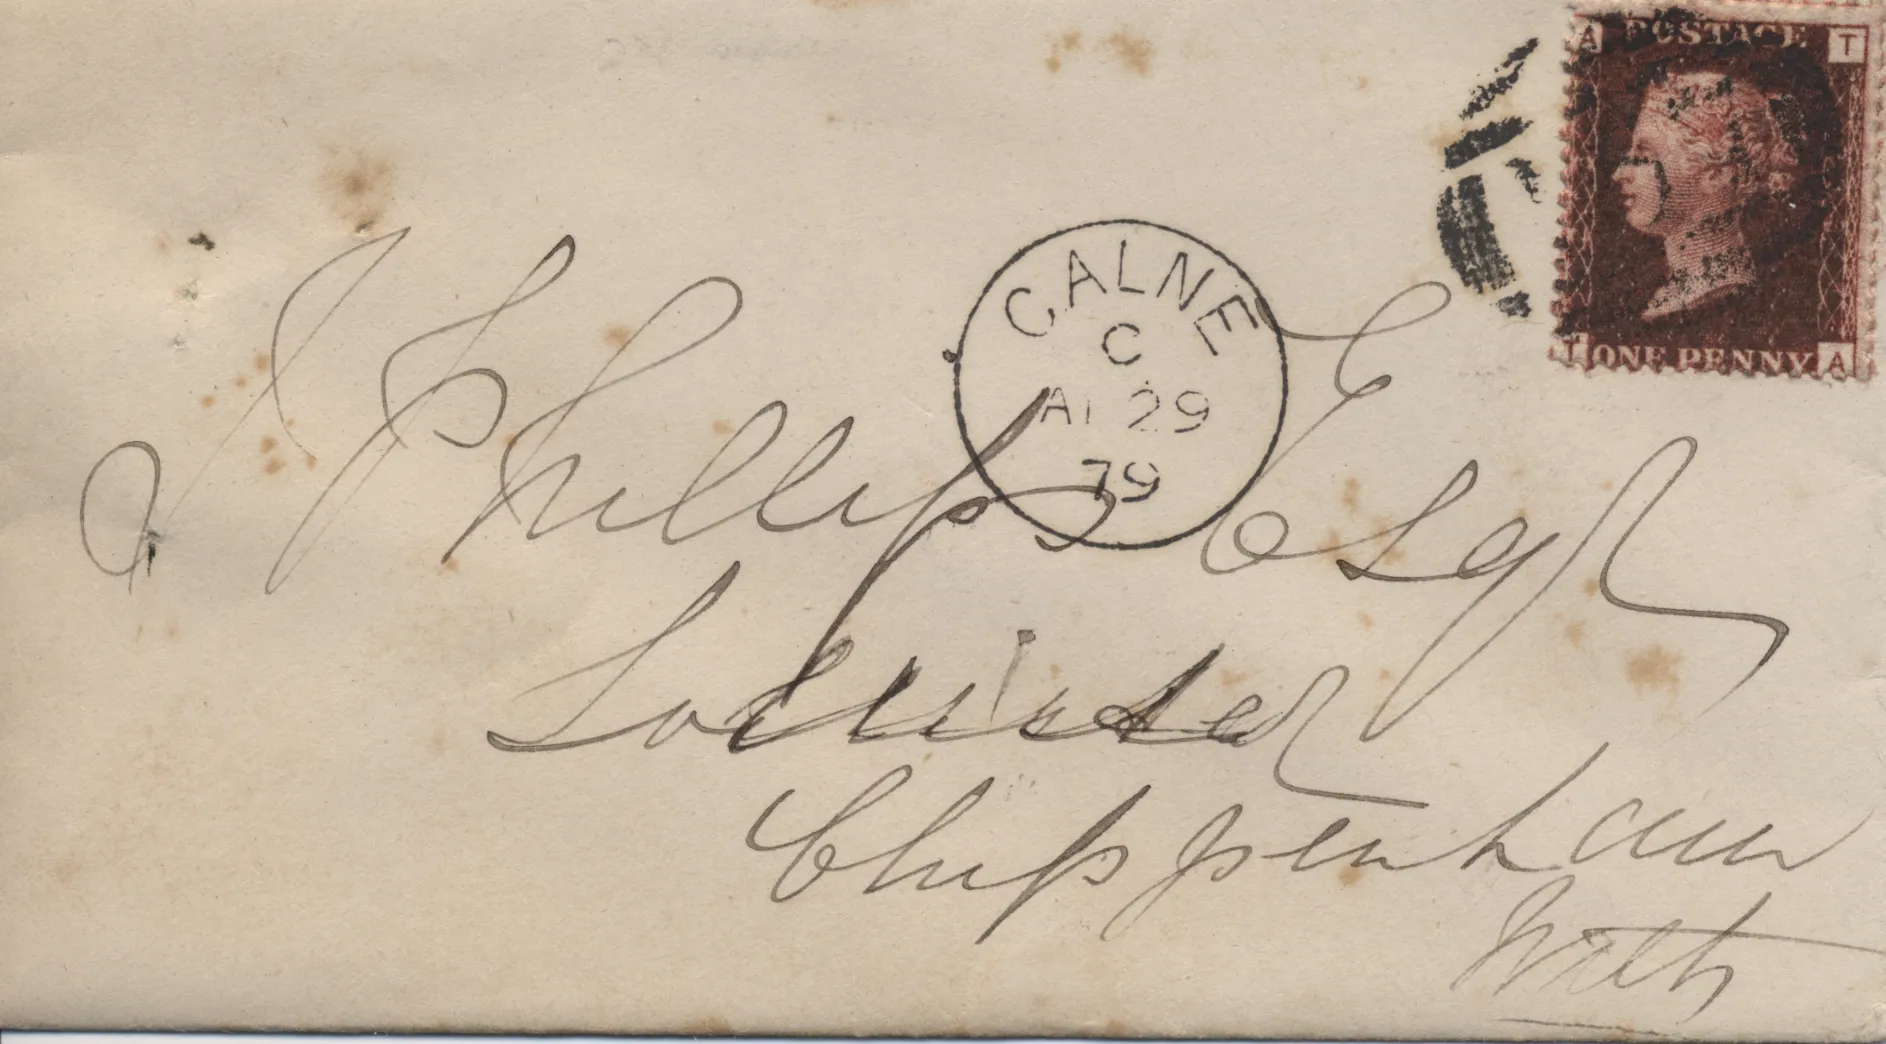 A POSTAGE T
T ONE PENNY A
CALNE
C
29
79
J Phillips Esqr
Solicitor
Chippenham
Wilts